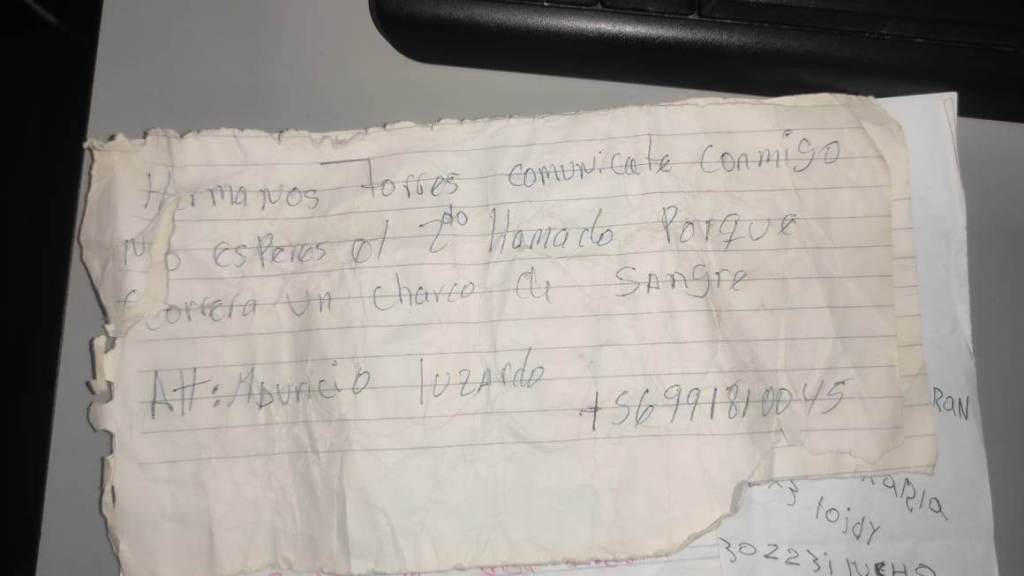 Hermanos Torres comunicate conmigo
No esperes el 2do llamado Porque
Correra un charco de Sangre
Att: Mauricio luzardo
+56991810045
RaN
MaRIa
lojdy
30223i